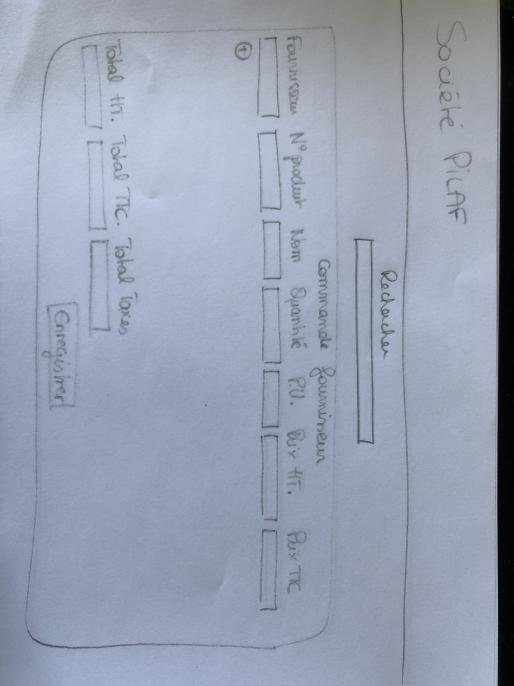 Société PILAF
Rechercher
Commande fournisseur
Fournisseur N° produit Nom Quantité P.U. Prix HT. Prix TTC
+
Total HT. Total TTC. Total Taxes
Enregistrer